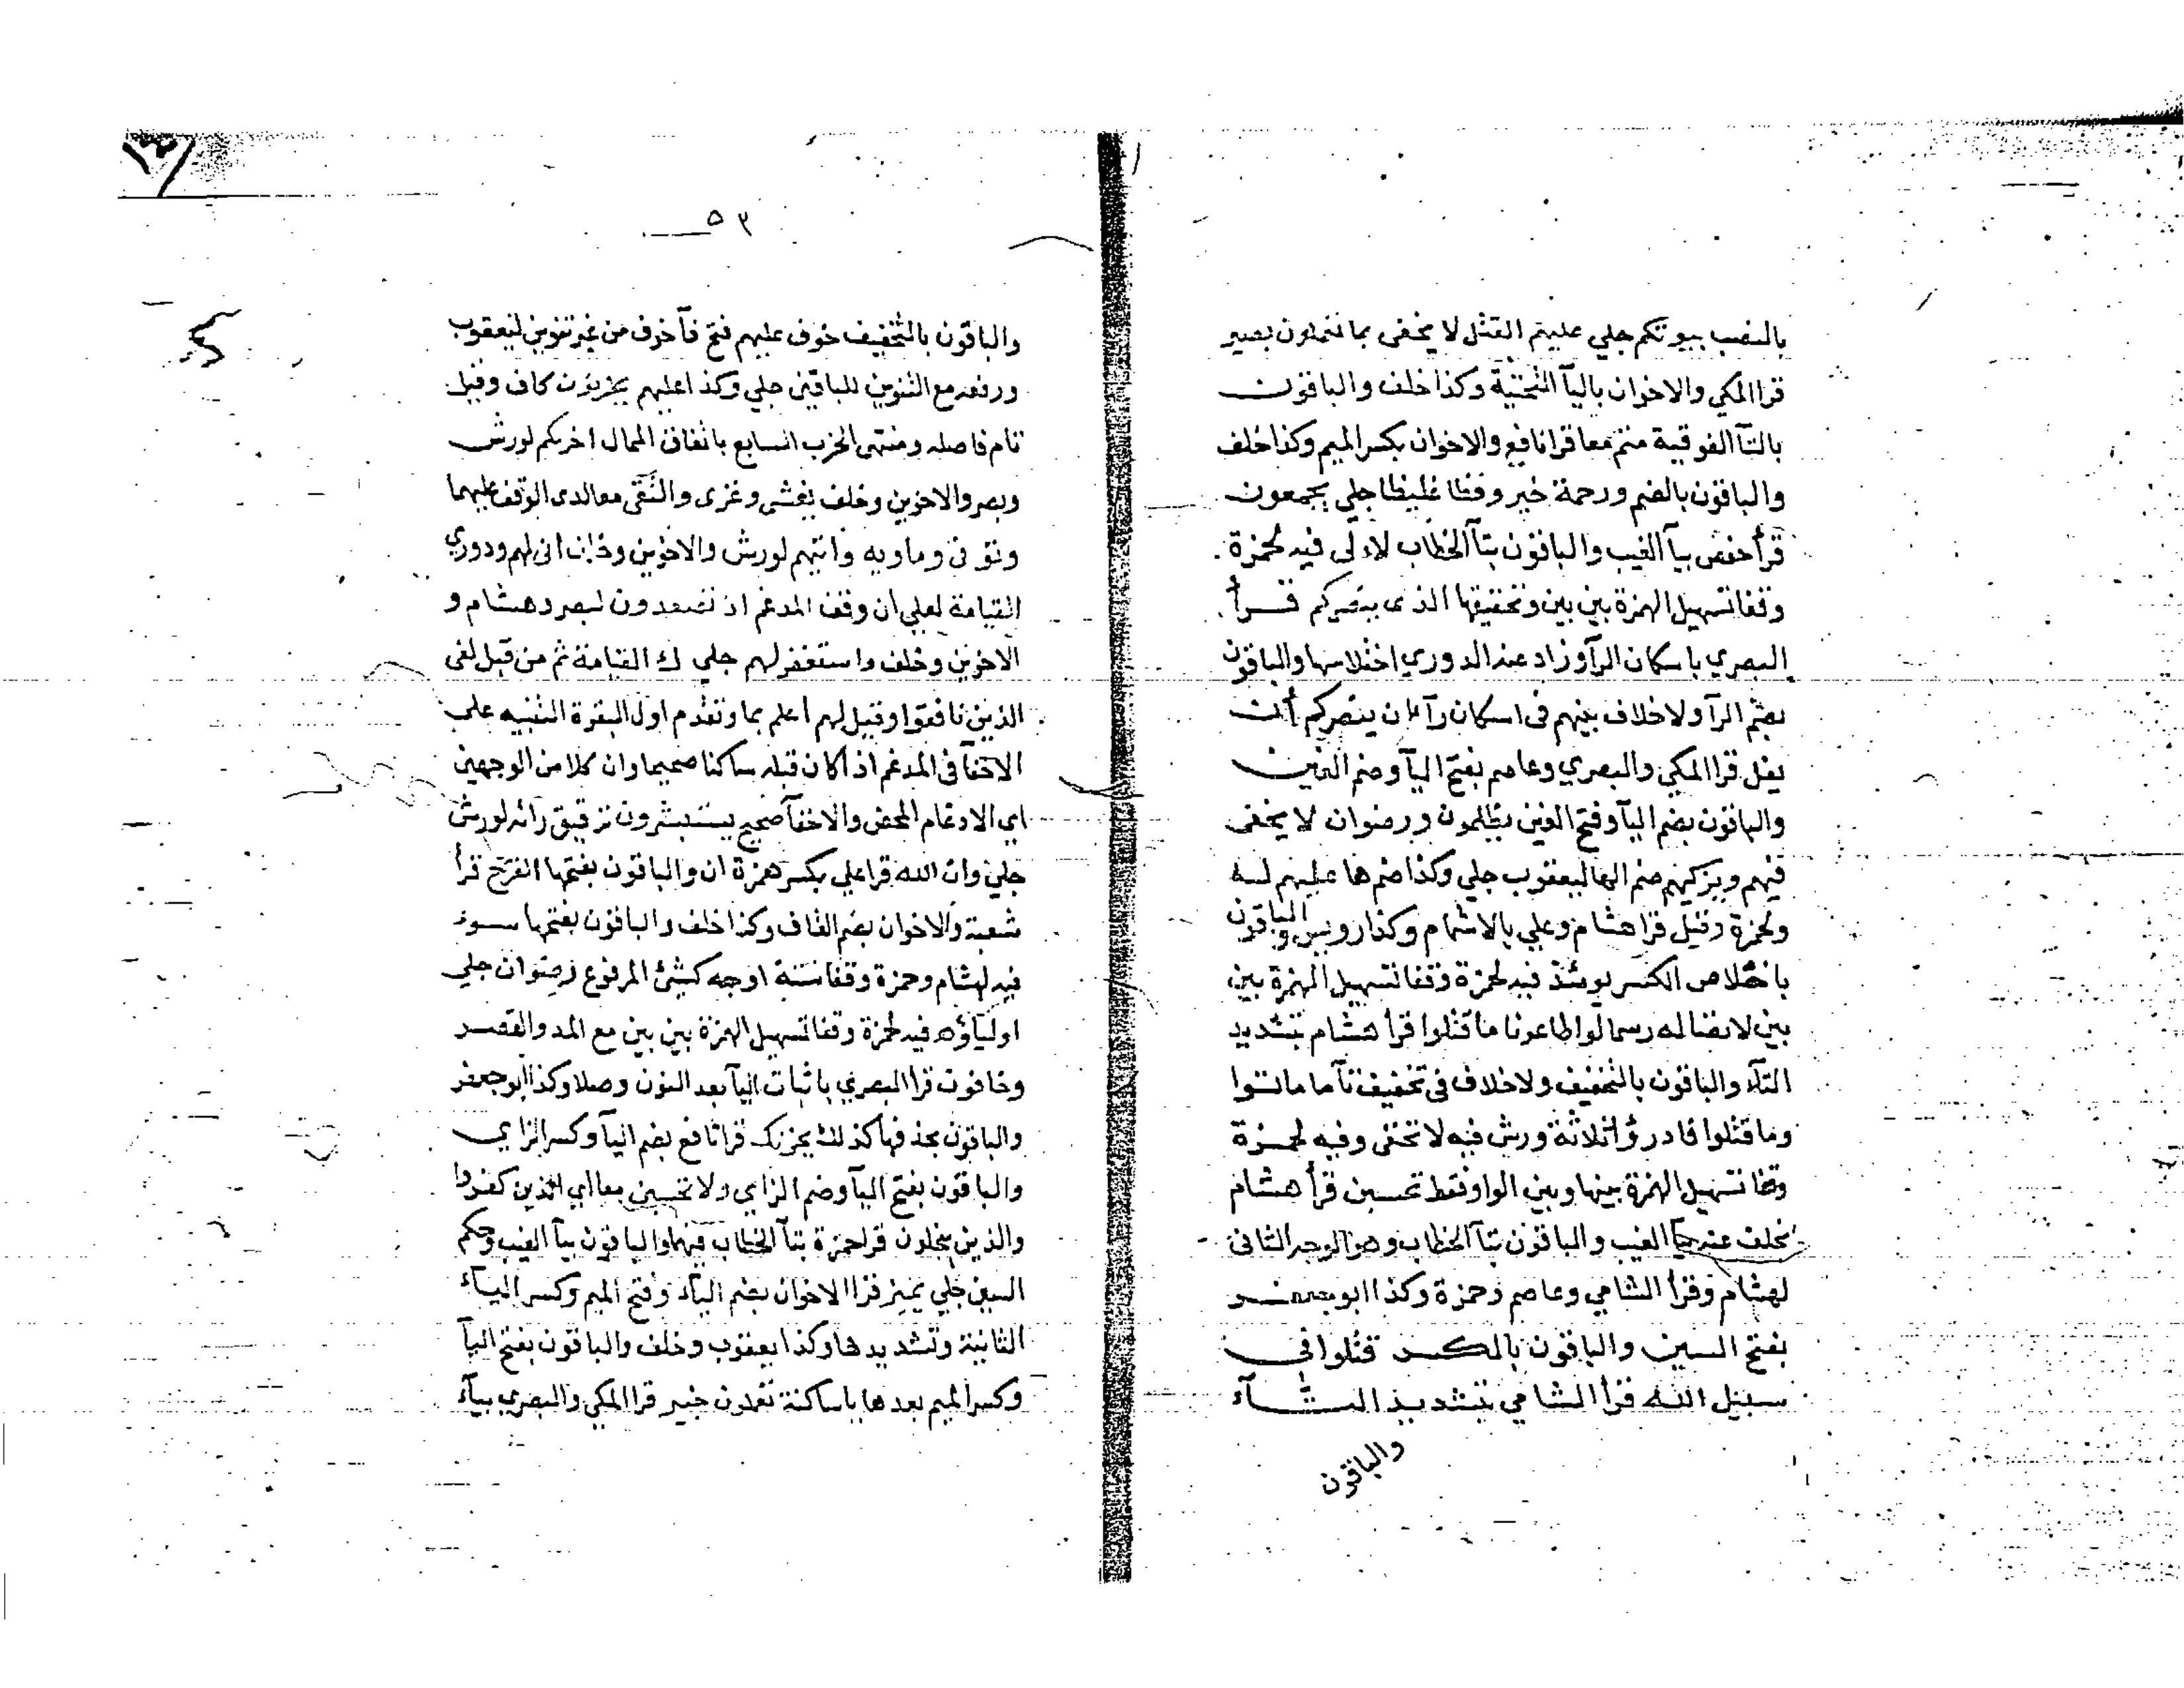 بالنصب بيوتكم جلي عليهم القتل لا يخفى بما تعملون بصير
قرا المكي والاخوان باليآ التحتية وكذا خلف والباقون
بالتآ الفوقية متم معا قرا نافع والاخوان بكسر الميم وكذا خلف
والباقون بالضم ورحمة خير وفظا غليظا جلي يجمعون
قرأ حفص بيآ الغيب والباقون بتآ الخطاب لالى فيه لحمزة
وقفا تسهيل الهمزة بين بين وتحقيقها الذي ينصركم قرأ
البصري باسكان الرآ وزاد عنه الدوري اختلاسها والباقون
بضم الرآ ولا خلاف بينهم في اسكان رآ ان ينصركم أن
يغل قرا المكي والبصري وعاصم بفتح اليآ وضم الغين
والباقون بضم اليآ وفتح الغين يظلمون ورضوان لا يخفى
فيهم ويزكيهم ضم الها ليعقوب جلي وكذا ضم ها عليهم له
ولحمزة وقيل قرا هشام وعلي بالاشمام وكذا رويس والباقون
باخلاص الكسر يومئذ فيه لحمزة وقفا تسهيل الهمزة بين
بين لاتصاله رسما لو اطاعونا ما قتلوا قرأ هشام بتشديد
التآء والباقون بالتخفيف ولا خلاف في تخفيف تآ ما ماتوا
وما قتلوا فادرؤا ثلاثة ورش فيه لا تخفى وفيه لحمزة
وقفا تسهيل الهمزة بينها وبين الواو فقط تحسبن قرأ هشام
بخلف عنه بيآ الغيب والباقون بتآ الخطاب وهو الوجه الثاني
لهشام وقرأ الشامي وعاصم وحمزة وكذا ابو جعفر
بفتح السين والباقون بالكسر قتلوا في
سبيل الله قرأ الشامي بتشديد التآء
والباقون
٥٣
والباقون بالتخفيف خوف عليهم فتح فآ خوف من غير تنوين ليعقوب
ورفعه مع التنوين للباقين جلي وكذا عليهم يحزنون كاف وقيل
تام فاصلة ومنتهى الحزب السابع باتفاق الممال اخركم لورش
وبصر والاخوين وخلف يغشى وغزى والتقى معا لدى الوقف عليهما
وتوفى وماويه واتيهم لورش والاخوين وخلف انى لهم ودوري
القيامة لعلي ان وقف المدغم اذ تصعدون لبصر وهشام و
الاخوين وخلف واستغفر لهم جلي ك القيامة ثم من قبل لفي
الذين نافقوا وقيل لهم اعلم بما وتقدم اول البقرة التنبيه على
الاخفآ في المدغم اذا كان قبله ساكنا صحيحا وان كلا من الوجهين
اي الادغام المحض والاخفآ صحيح يستبشرون ترقيق رائه لورش
جلي وان الله قرا علي بكسر همزة ان والباقون بفتحها القرح قرأ
شعبة والاخوان بضم القاف وكذا خلف والباقون بفتحها سوء
فيه لهشام وحمزة وقفا ستة اوجه كشيئ المرفوع رضوان جلي
اوليآؤه فيه لحمزة وقفا تسهيل الهمزة بين بين مع المد والقصر
وخافون قرا البصري باثبات اليآ بعد النون وصلا وكذا ابو جعفر
والباقون بحذفها كذلك يحزنك قرا نافع بضم اليآ وكسر الزاي
والباقون بفتح اليآ وضم الزاي ولا تحسبن معا اي الذين كفروا
والذين يبخلون قرا حمزة بتآ الخطاب فيهما والباقون بيآ الغيب وحكم
السين جلي يميز قرا الاخوان بضم اليآء وفتح الميم وكسر اليآء
الثانية وتشديدها وكذا يعقوب وخلف والباقون بفتح اليآ
وكسر الميم بعدها ياساكنة تعملون خبير قرا المكي والبصري بيآء